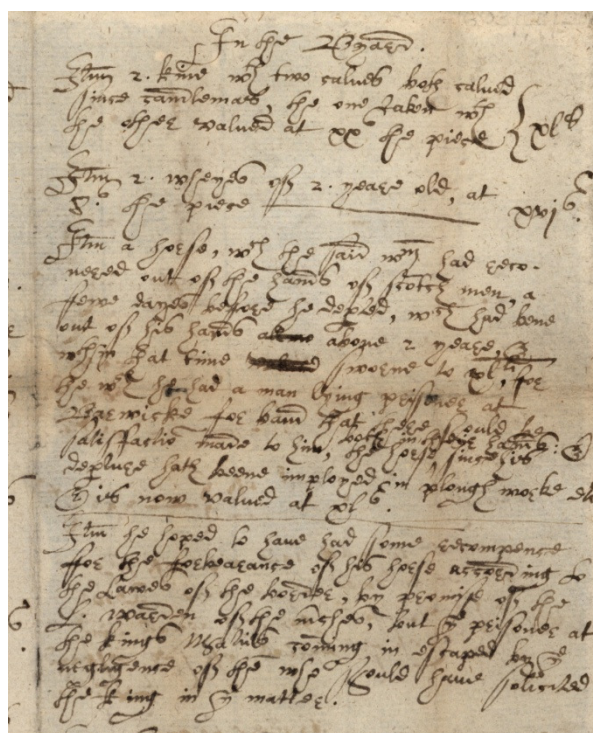 In the Byard.
Itm 2. kine wth two calves both calved
since candlemas, the one taken wth
the other valued at xxs the piece } xls
Itm 2. wheyes of 2. yeare old, at
8s. the piece xvjs.
Itm a horse, wch the said Wm had reco-
nered out of the hands of Scotch men, a
fewe dayes before he depted, wch had bene
out of his hands above 2 yeare, &
wthin that time sworne to xlli, for
the wch he had a man lying prisoner at
Barwicke for band that there should be
satisfactio made to him, both in
the horse, since his
depture hath beene imployed in plough worke
& is now valued at xls.
Itm he hoped to have had some recompence
for the forbearance of his horse according to
the Lawes of the border, by promise of the
L. warden of the miches, but ye prisoner at
the kings Maties coming in escaped by ye
negligence of the who should have solicited
the king in yt matter.